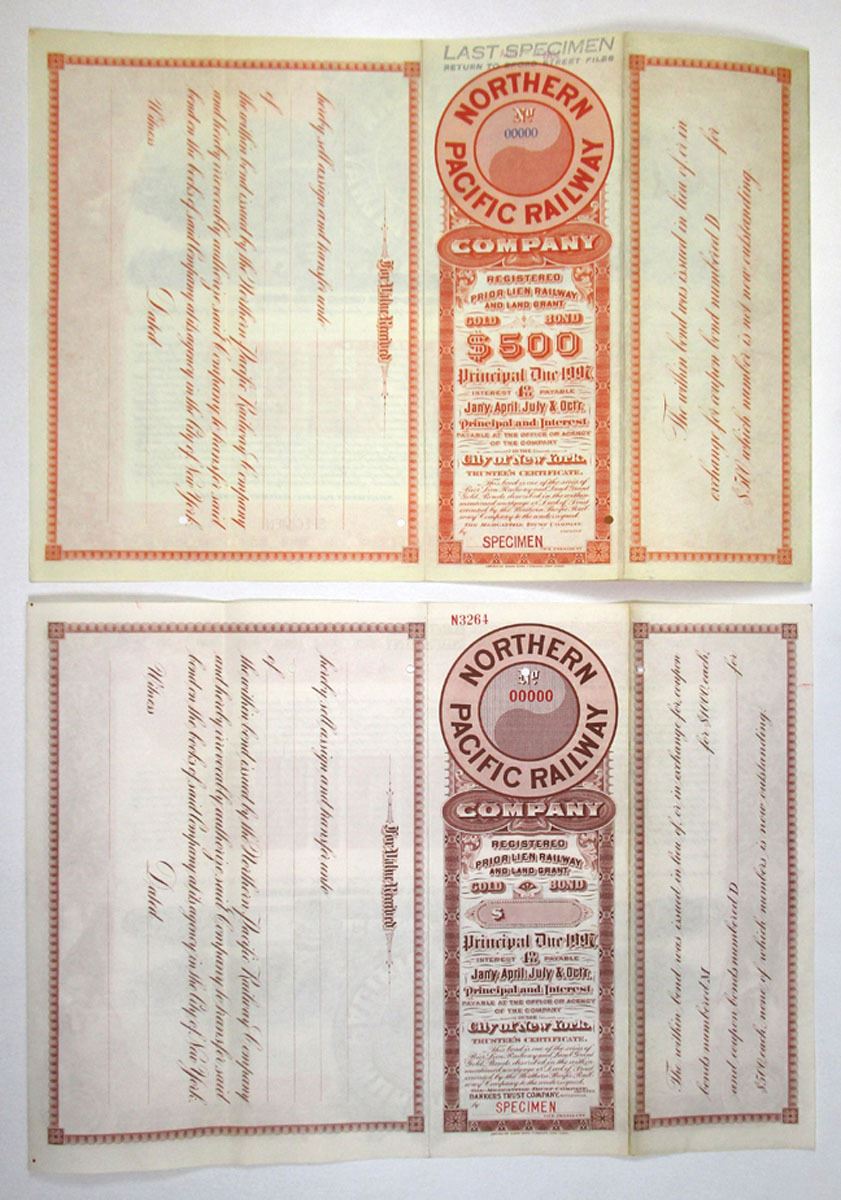 LAST SPECIMEN
RETURN TO BROAD STREET FILES
NORTHERN
PACIFIC RAILWAY
No
00000
COMPANY
REGISTERED
PRIOR LIEN RAILWAY
AND LAND GRANT
GOLD BOND
$500
Principal Due 1997
INTEREST 4% PAYABLE
Jany, April, July & Octr.
Principal and Interest
PAYABLE AT THE OFFICE OR AGENCY
OF THE COMPANY
IN THE
City of New York.
TRUSTEE'S CERTIFICATE.
This bond is one of the series of
Prior Lien Railway and Land Grant
Gold Bonds described in the within
mentioned mortgage or Deed of Trust
executed by the Northern Pacific Rail-
way Company to the undersigned.
THE MERCANTILE TRUST COMPANY
By
SPECIMEN
VICE PRESIDENT
For Value Received
hereby sell assign and transfer unto
of
the within bond issued by the Northern Pacific Railway Company
and hereby irrevocably authorize said Company to transfer said
bond on the books of said Company at its agency in the City of New York.
Dated
Witness
The within bond was issued in lieu of or in
exchange for coupon bond numbered D for
$500 which number is not now outstanding
N3264
NORTHERN
PACIFIC RAILWAY
No
00000
COMPANY
REGISTERED
PRIOR LIEN RAILWAY
AND LAND GRANT
GOLD BOND
$
Principal Due 1997
INTEREST 4% PAYABLE
Jany, April, July & Octr.
Principal and Interest
PAYABLE AT THE OFFICE OR AGENCY
OF THE COMPANY
IN THE
City of New York.
TRUSTEE'S CERTIFICATE.
This bond is one of the series of
Prior Lien Railway and Land Grant
Gold Bonds described in the within
mentioned mortgage or Deed of Trust
executed by the Northern Pacific Rail-
way Company to the undersigned.
THE MERCANTILE TRUST COMPANY
BANKERS TRUST COMPANY,
By
SPECIMEN
VICE PRESIDENT
For Value Received
hereby sell assign and transfer unto
of
the within bond issued by the Northern Pacific Railway Company
and hereby irrevocably authorize said Company to transfer said
bond on the books of said Company at its agency in the City of New York.
Dated
Witness
The within bond was issued in lieu of or in exchange for coupon
bonds numbered M for $1000 each,
and coupon bonds numbered D for
$500 each, none of which numbers is now outstanding.